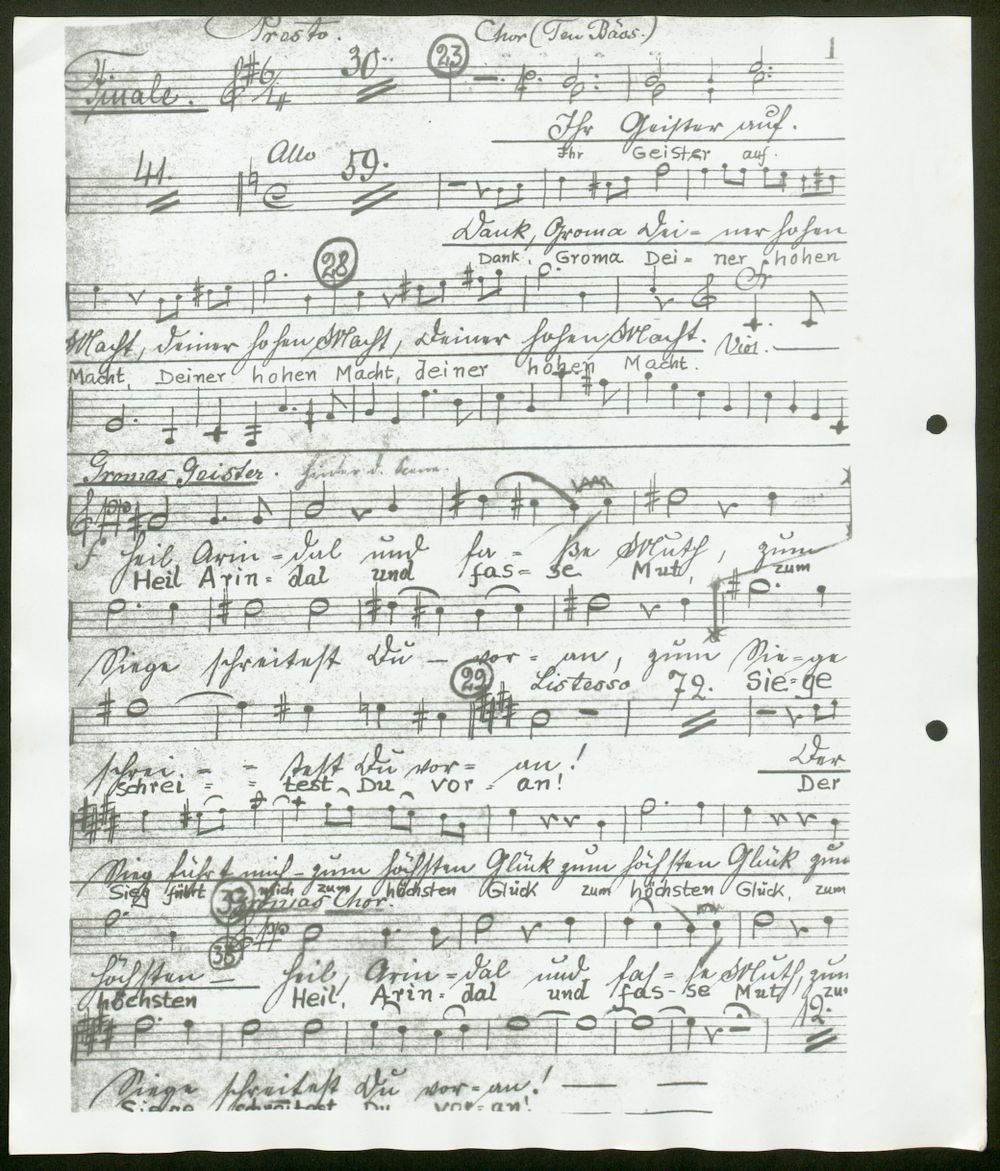 Presto. Chor (Ten Bäss.) 1
Finale. 6/4 30. 23
Ihr Geister auf.
Ihr Geister auf.
41. Allo 59.
Dank, Groma Dei = ner hohen
Dank, Groma Dei = ner hohen
28
Macht, deiner hohen Macht, deiner hohen Macht. Viol.
Macht, Deiner hohen Macht, deiner hohen Macht.
Gromas Geister. hinter d. Scene.
pp
f Heil Arin = dal und fa = ße Muth, zum
Heil Arin = dal und fas = se Mut, zum
Siege schreitest Du – vor = an, zum Sie = ge
29 Listesso 72. Sie = ge
schrei = = test Du vor = an! Der
schrei = = test Du vor = an! Der
Sieg führt mich – zum höchsten Glück zum höchsten Glück zum
Sieg führt mich zum höchsten Glück zum höchsten Glück, zum
Gromas Chor.
pp
38
höchsten – Heil, Arin = dal und fas = se Muth, zum
höchsten Heil, Arin = dal und fas = se Mut, zu
12.
Siege schreitest Du vor = an!
Siege schreitest Du vor = an!